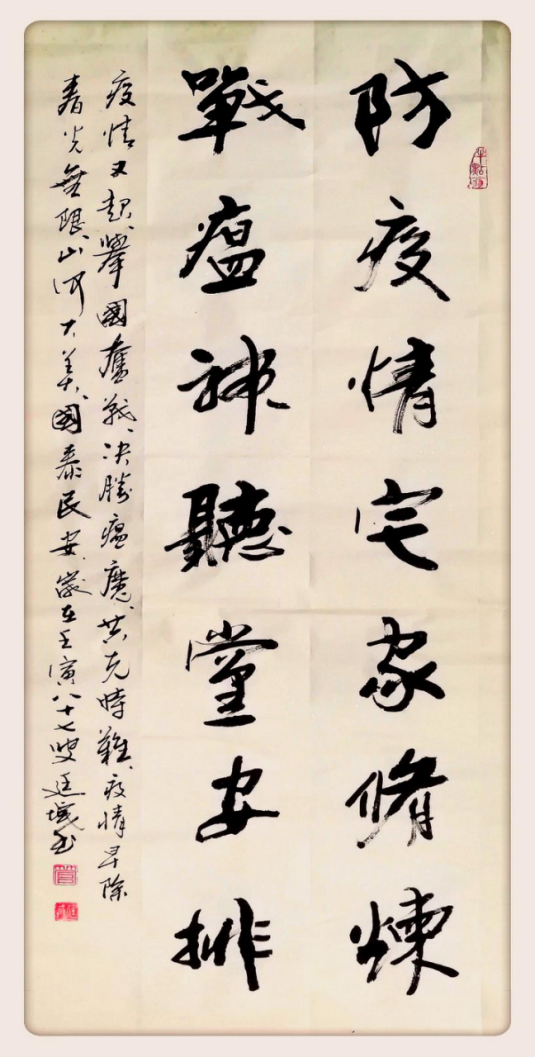 防疫情宅家脩煉
戰瘟神聽堂安排
疫情又起、舉國奮戰、决勝瘟魔、共克時難、疫情早除
春光無限、山河大美、國泰民安、歲在壬寅八十七叟廷城书